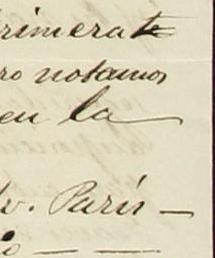 rimera te
ro notamos
en la
dv. París —
io — —